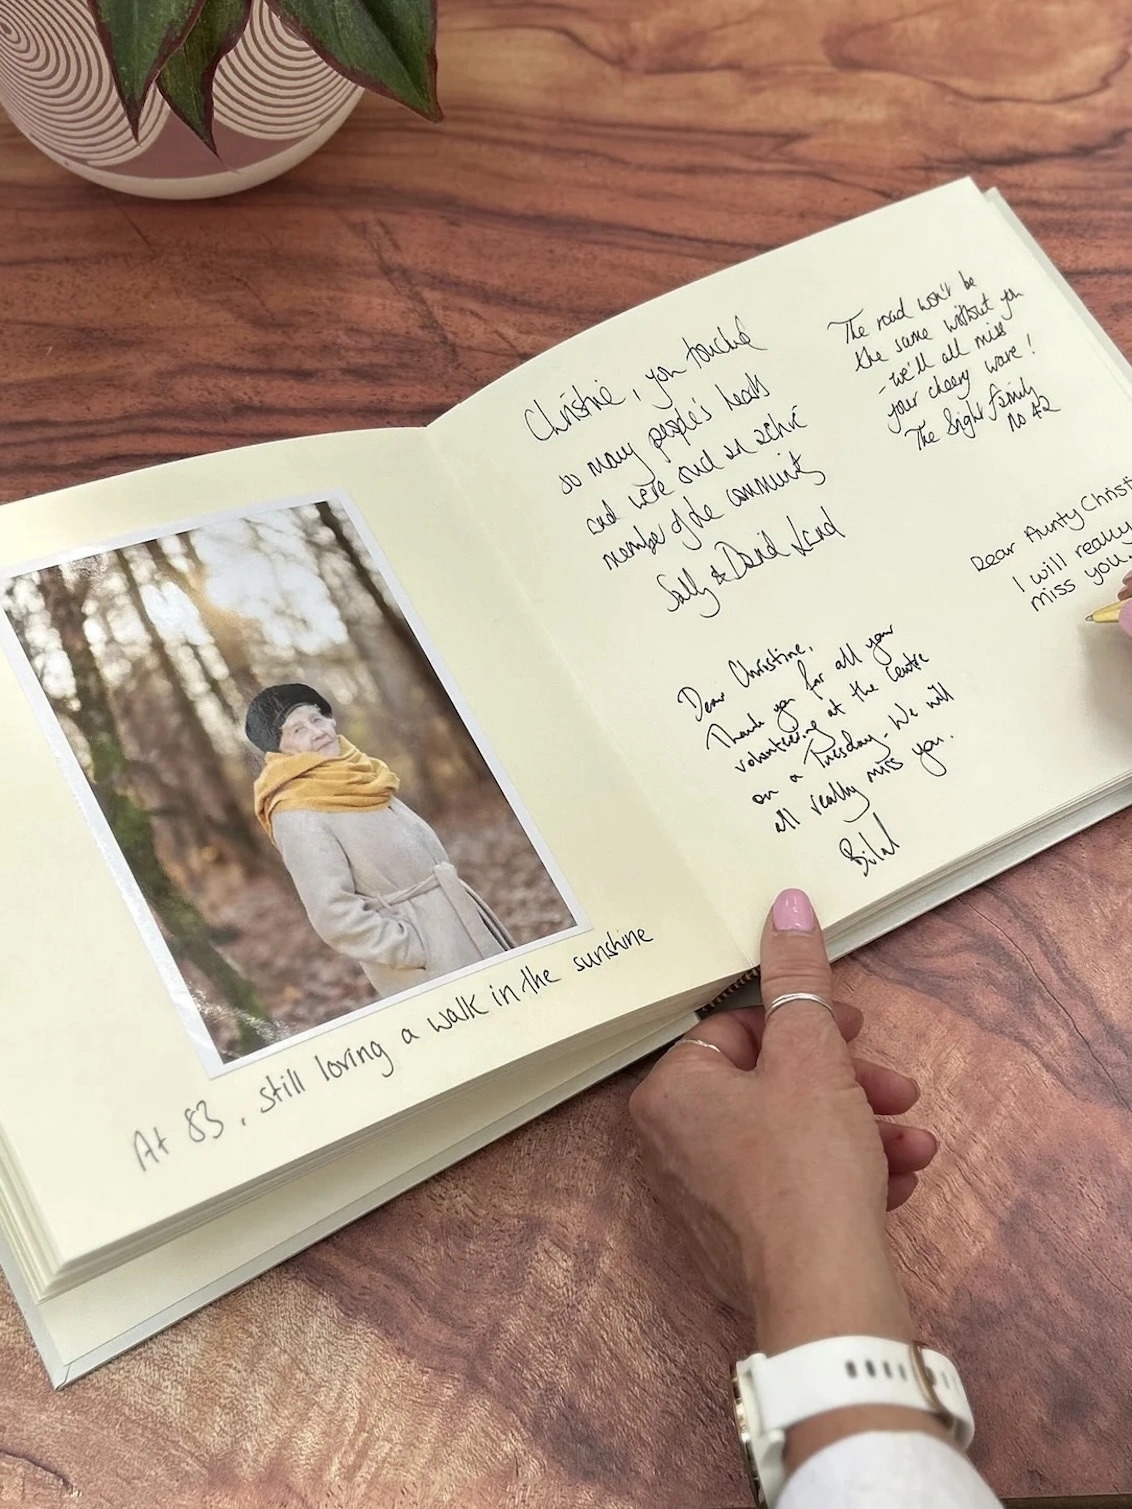 At 83, still loving a walk in the sunshine
Christine, you touched
so many people's hearts
and were such an active
member of the community
Sally & David Land
The road won't be
the same without you
- we'll all miss
your cheery wave!
The Bright family
No 42
Dear Christine,
Thank you for all your
volunteering at the Centre
on a Tuesday. We will
all really miss you.
Bilal
Dear Aunty Christ
I will really
miss you.